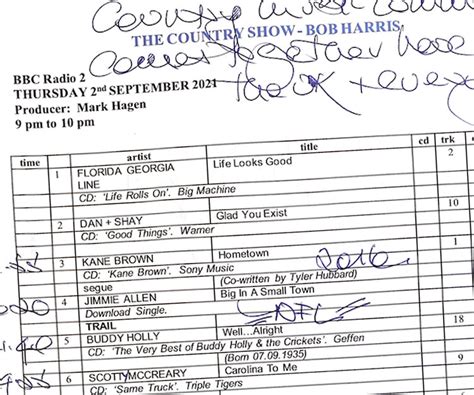 Country
THE COUNTRY SHOW - BOB HARRIS
comes together here
BBC Radio 2
THURSDAY 2nd SEPTEMBER 2021
the UK + every
Producer: Mark Hagen
9 pm to 10 pm
time artist title cd trk
1 FLORIDA GEORGIA LINE Life Looks Good 2
CD: 'Life Rolls On'. Big Machine
2 DAN + SHAY Glad You Exist 10
CD: 'Good Things'. Warner
3 KANE BROWN Hometown 1
CD: 'Kane Brown'. Sony Music 2016
segue (Co-written by Tyler Hubbard)
4 JIMMIE ALLEN Big In A Small Town
Download Single.
TRAIL
5 BUDDY HOLLY Well...Alright 18
CD: 'The Very Best of Buddy Holly & the Crickets'. Geffen
(Born 07.09.1935)
6 SCOTTY MCCREARY Carolina To Me
CD: 'Same Truck'. Triple Tigers